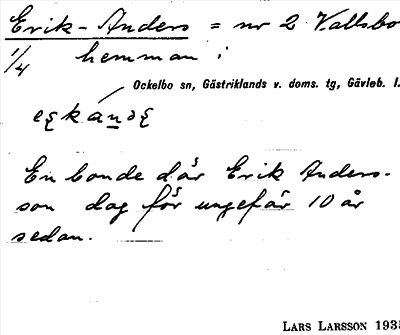 Erik-Anders = nr 2 Vallsbo
1/4 hemman i
Ockelbo sn, Gästriklands v. doms. tg, Gävleb. l.
En bonde där Erik Anders-
son dog för ungefär 10 år
sedan.
LARS LARSSON 1935